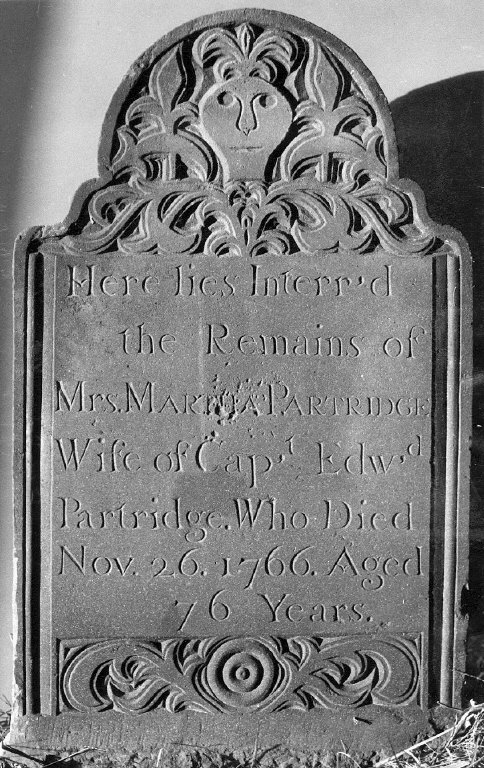 Here lies Interr'd
the Remains of
Mrs. MARTHA PARTRIDGE
Wife of Cap,t Edw,d
Partridge. Who Died
Nov. 26. 1766. Aged
76 Years.